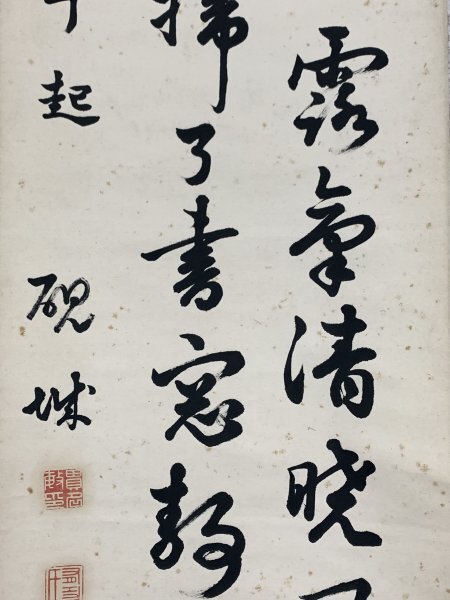 露氣清曉
掃了書窓静
起 硯城